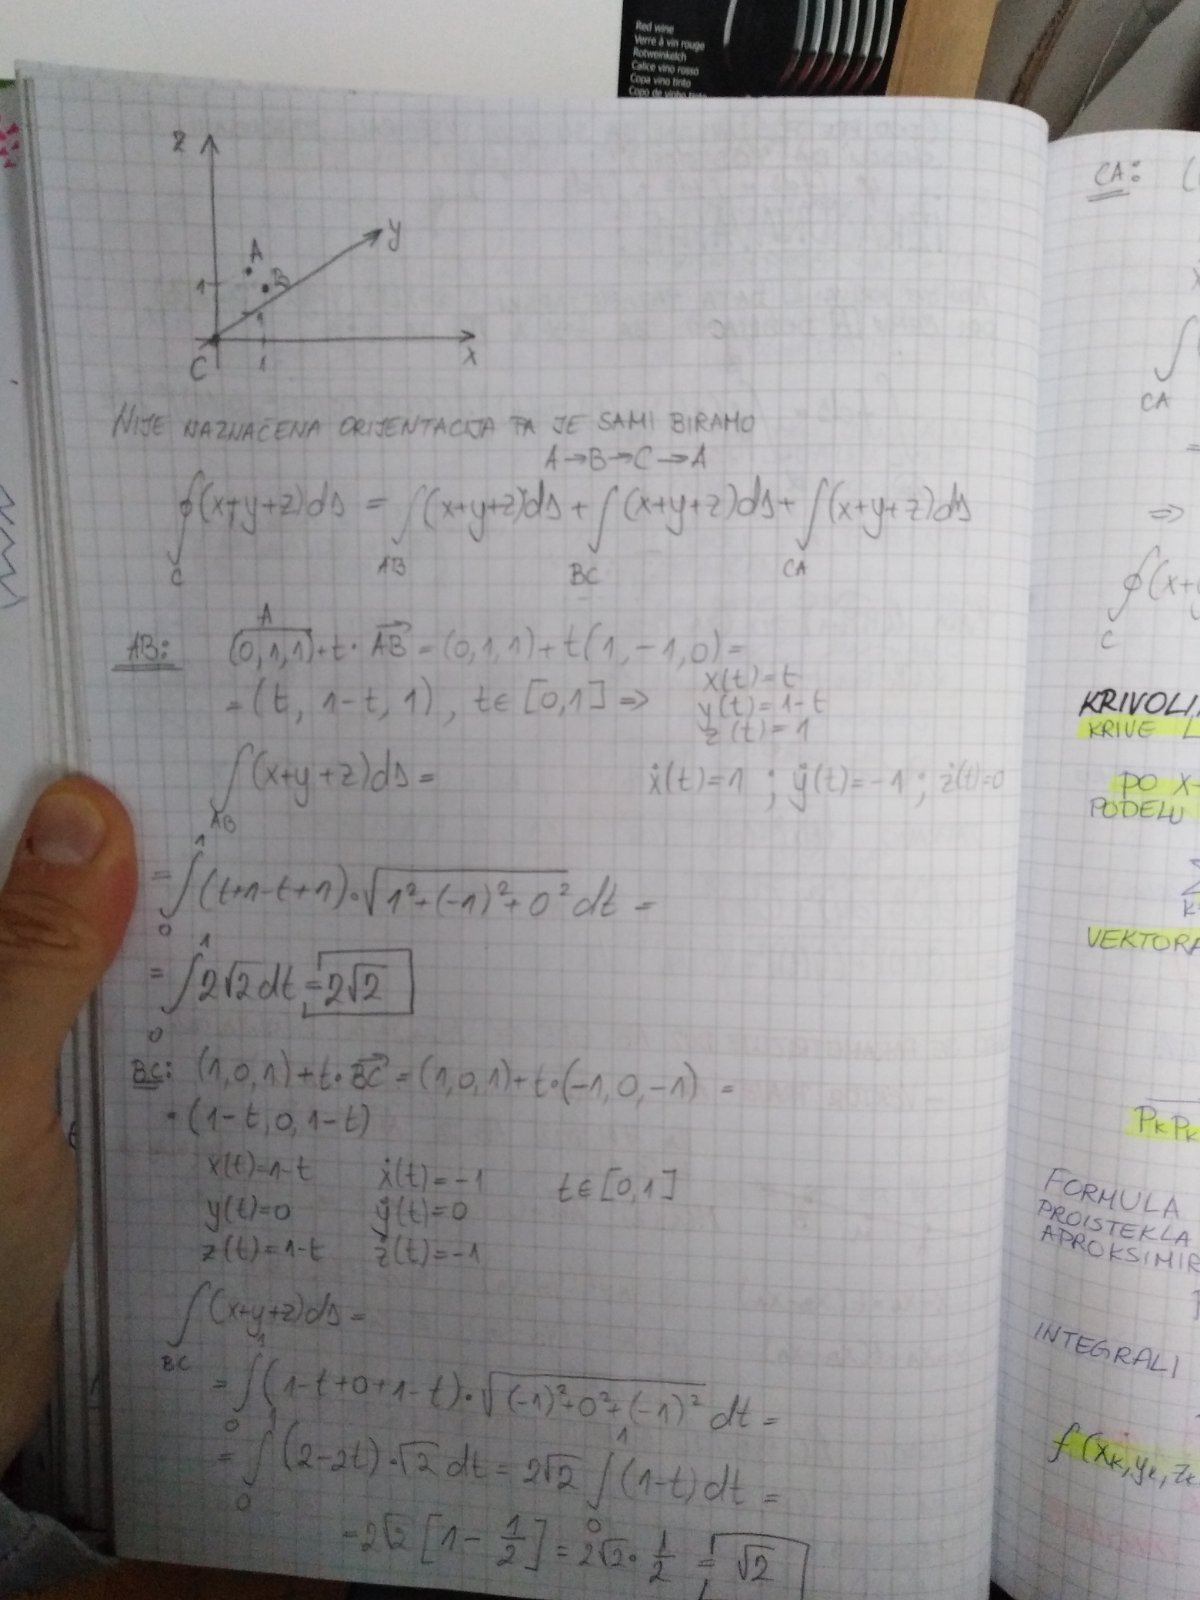 Red wine
Verre à vin rouge
Rotweinkelch
Calice vino rosso
Copa vino tinto
Copo de vinho tinto
z
A
y
1
B
1
C
1
x
NIJE NAZNAČENA ORIJENTACIJA PA JE SAMI BIRAMO
A→B→C→A
∮(x+y+z)ds = ∫(x+y+z)ds + ∫(x+y+z)ds + ∫(x+y+z)ds
C AB BC CA
A
AB: (0,1,1)+t·AB = (0,1,1)+t(1,-1,0) =
= (t, 1-t, 1), t∈[0,1] ⇒ x(t)=t
y(t)=1-t
z(t)=1
∫(x+y+z)ds = ẋ(t)=1 ; ẏ(t)=-1 ; ż(t)=0
AB
1
= ∫(t+1-t+1)·√1²+(-1)²+0² dt =
0
1
= ∫2√2 dt = 2√2
0
BC: (1,0,1)+t·BC = (1,0,1)+t·(-1,0,-1) =
= (1-t,0,1-t)
x(t)=1-t ẋ(t)=-1 t∈[0,1]
y(t)=0 ẏ(t)=0
z(t)=1-t ż(t)=-1
∫(x+y+z)ds =
BC
1
= ∫(1-t+0+1-t)·√(-1)²+0²+(-1)² dt =
0
1 1
= ∫(2-2t)·√2 dt = 2√2 ∫(1-t)dt =
0 0
= 2√2 [1 - 1/2] = 2√2 · 1/2 = √2
CA: (
∫
CA
⇒
∮(x+
C
KRIVOLI
KRIVE L
PO X
PODELU
VEKTORA
PkPk
FORMULA
PROISTEKLA
APROKSIMIR
INTEGRALI
f(xk,yk,zk